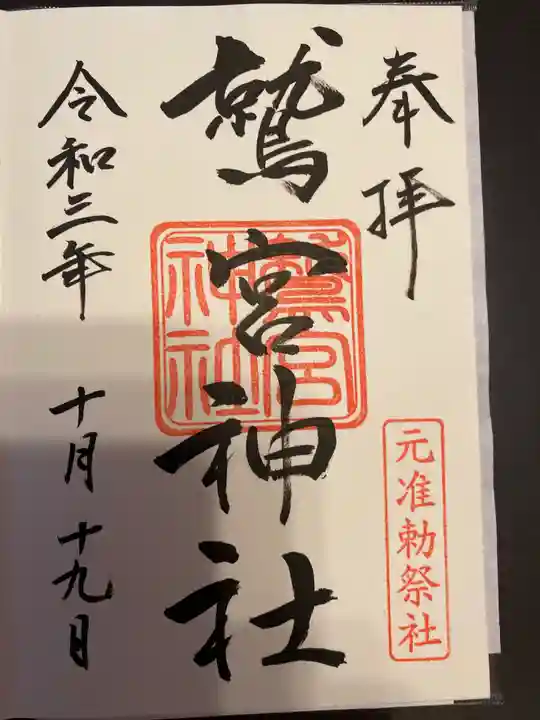 奉拝
元准勅祭社
鷲宮神社
鷲宮
神社
令和三年 十月 十九日